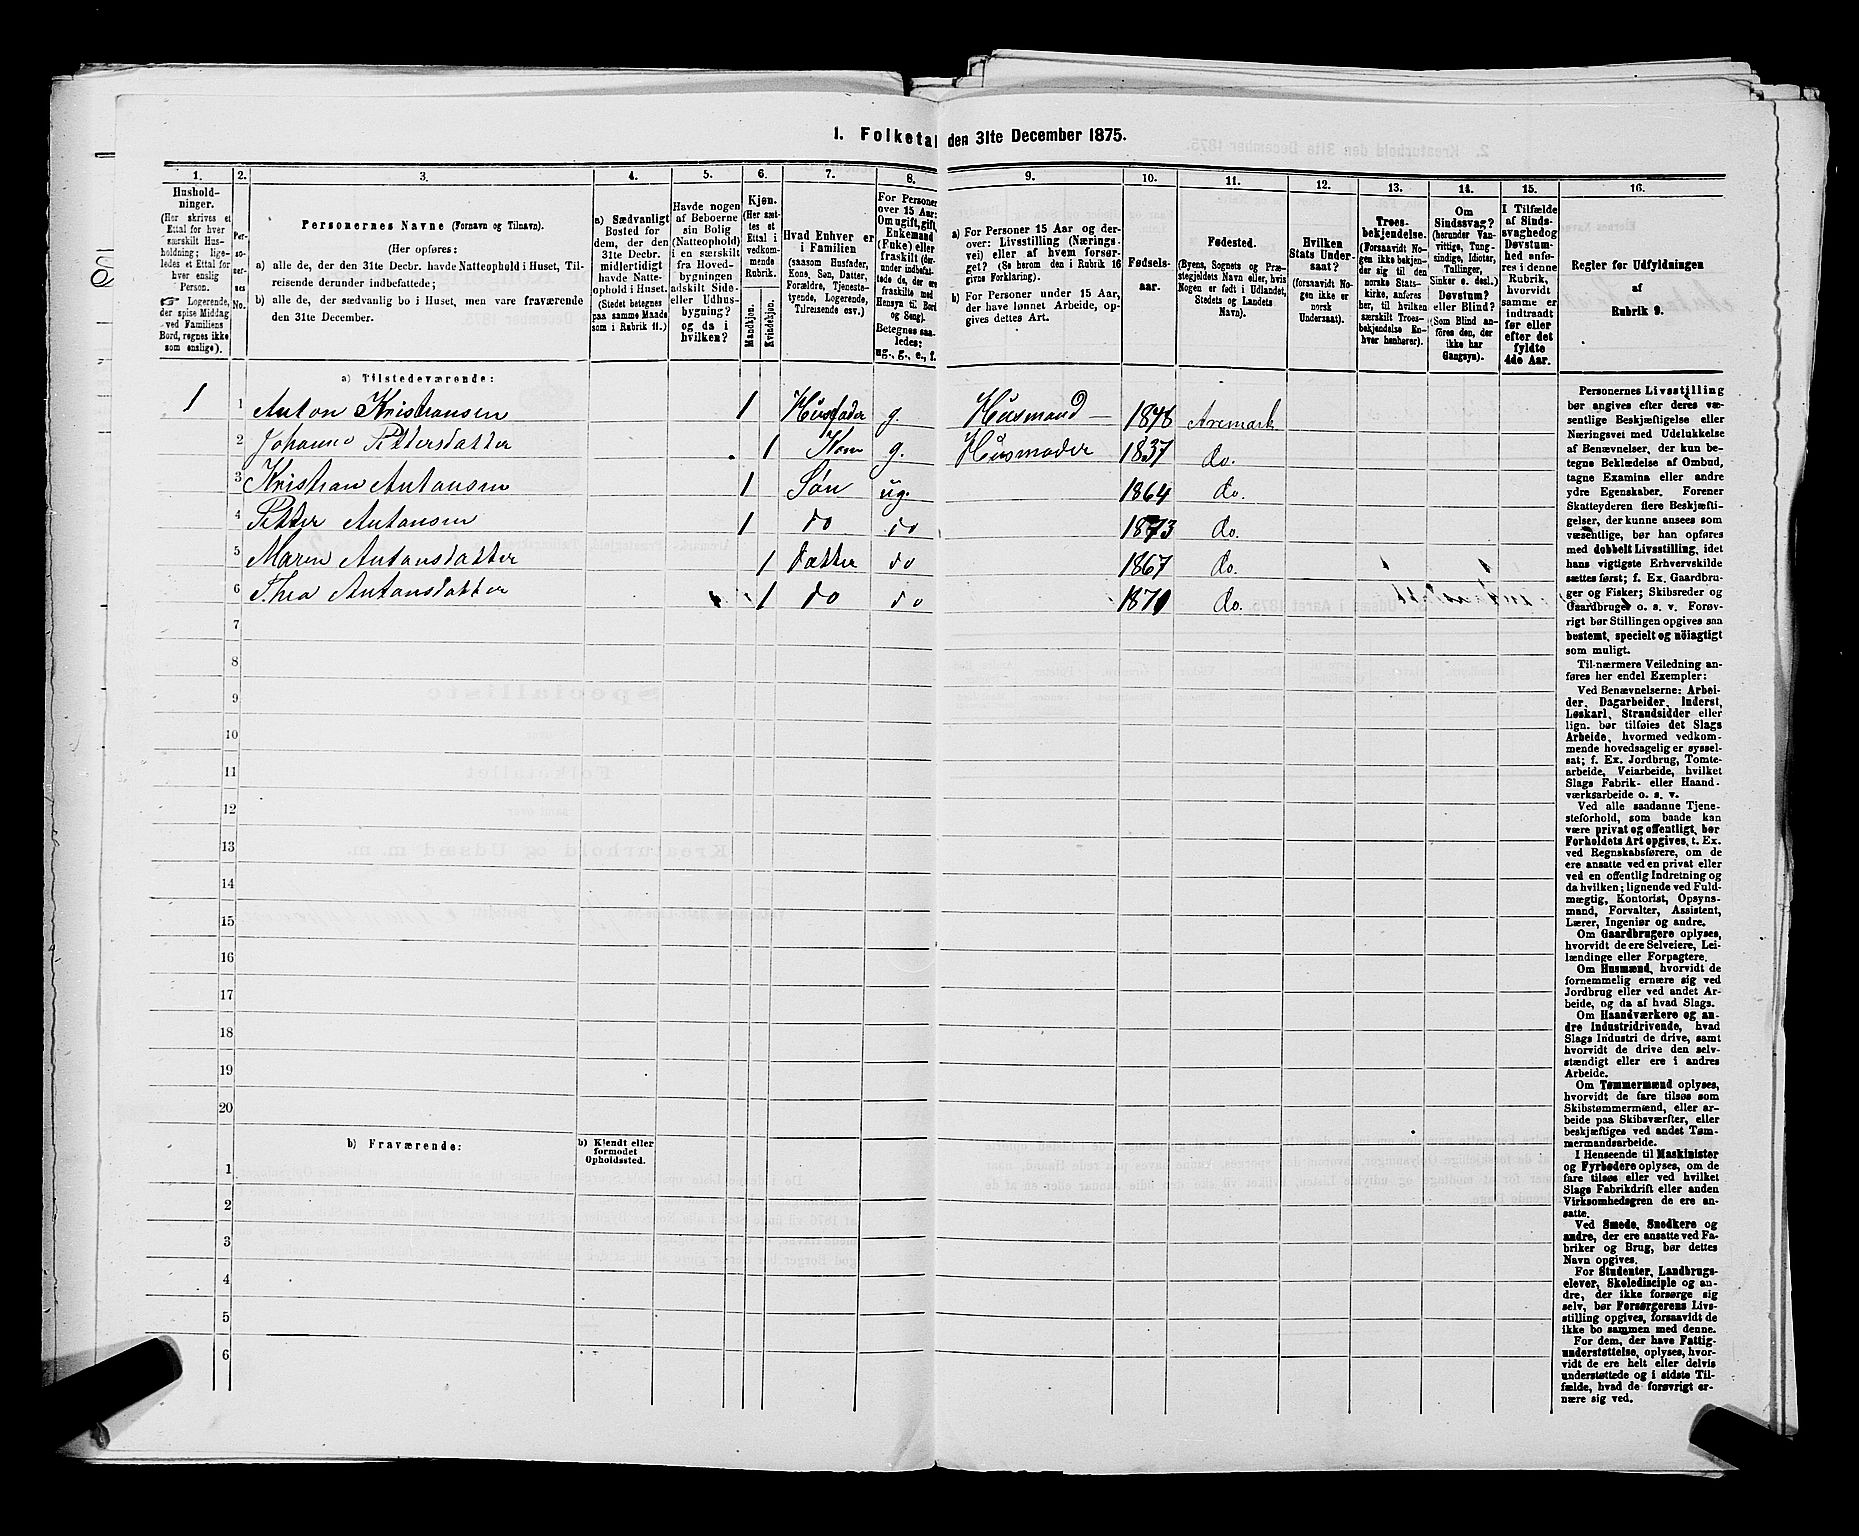 1. Folketal den 31te December 1875.
1.
Hushold-
ninger.
(Her skrives et
Ettal for hver
særskilt Hus-
holdning; lige-
ledes et Ettal for
hver enslig
Person.
☞ Logerende,
der spise Middag
ved Familiens
Bord, regnes ikke
som enslige).
2.
Per-
soner-
nes
No.
3.
Personernes Navne (Fornavn og Tilnavn).
(Her opføres:
a) alle de, der den 31te Decbr. havde Natteophold i Huset, Til-
reisende derunder indbefattede;
b) alle de, der sædvanlig bo i Huset, men vare fraværende
den 31te December.
4.
a) Sædvanligt
Bosted for
dem, der den
31te Decbr.
midlertidigt
havde Natte-
ophold i Huset.
(Stedet betegnes
paa samme Maade
som i Rubrik 11.)
5.
Havde nogen
af Beboerne
sin Bolig
(Natteophold)
i en særskilt
fra Hoved-
bygningen
adskilt Side-
eller Udhus-
bygning?
og da i
hvilken?
6.
Kjøn.
(Her sæt-
tes et
Ettal i
vedkom-
mende
Rubrik.
Mandkjøn.
Kvindekjøn.
7.
Hvad Enhver er
i Familien
(saasom Husfader,
Kone, Søn, Datter,
Forældre, Tjeneste-
tyende, Logerende,
Tilreisende osv.)
8.
For Personer
over 15 Aar:
Om ugift, gift,
Enkemand
(Enke) eller
fraskilt (der-
under indbefat-
tede de, der ere
fraskilte med
Hensyn til Bord
og Seng).
Betegnes saa-
ledes:
ug., g., e., f.
9.
a) For Personer 15 Aar og der-
over: Livsstilling (Nærings-
vei) eller af hvem forsør-
get? (Se herom den i Rubrik 16
givne Forklaring).
b) For Personer under 15 Aar,
der have lønnet Arbeide, op-
gives dettes Art.
10.
Fødsels-
aar.
11.
Fødested.
(Byens, Sognets og Præ-
stegjeldets Navn eller, hvis
Nogen er født i Udlandet,
Stedets og Landets
Navn).
12.
Hvilken
Stats Under-
saat?
(forsaavidt No-
gen ikke er
norsk
Undersaat).
13.
Troes-
bekjendelse.
(Forsaavidt No-
gen ikke bekjen-
der sig til den
norske Stats-
kirke, anføres
her, til hvilken
særskilt Troes-
bekjendelse En-
hver henhører).
14.
Om
Sindssvag?
(herunder Van-
vittige, Tung-
sindige, Idioter,
Tullinger,
Sinker o. desl.)
Døvstum?
eller Blind?
(Som Blind an-
føres den, der
ikke har
Gangsyn).
15.
I Tilfælde
af Sinds-
svaghed og
Døvstum-
hed anfø-
res i denne
Rubrik,
hvorvidt
samme er
indtraadt
før eller
efter det
fyldte
4de Aar.
16.
Regler for Udfyldningen
af
Rubrik 9.
a) Tilstedeværende:
1 1 Anton Kristiansen 1 Husfader g. Husmand 1848 Aremark
2 Johanne Pettersdatter 1 Kone g. Husmoder 1837 do.
3 Kristian Antonsen 1 Søn ug. 1864 do.
4 Petter Antonsen 1 do do 1873 do.
5 Maren Antonsdatter 1 Datter do 1867 do.
6 Thea Antonsdatter 1 do do 1870 do.
7
8
9
10
11
12
13
14
15
16
17
18
19
20
b) Fraværende:
b) Kjendt eller
formodet
Opholdssted.
1
2
3
4
5
6
Personernes Livsstilling
bør angives efter deres væ-
sentlige Beskjæftigelse eller
Næringsvei med Udelukkelse
af Benævnelser, der kun be-
tegne Beklædelse af Ombud,
tagne Examina eller andre
ydre Egenskaber. Forener
Skatteyderen flere Beskjæfti-
gelser, der kunne ansees som
væsentlige, bør han opføres
med dobbelt Livsstilling, idet
hans vigtigste Erhvervskilde
sættes først; f. Ex. Gaardbru-
ger og Fisker; Skibsreder og
Gaardbruger o. s. v. Forøv-
rigt bør Stillingen opgives saa
bestemt, specielt og nöiagtigt
som muligt.
Til nærmere Veiledning an-
føres her endel Exempler:
Ved Benævnelserne: Arbei-
der, Dagarbeider, Inderst,
Løskarl, Strandsidder eller
lign. bør tilføies det Slags
Arbeide, hvormed vedkom-
mende hovedsagelig er syssel-
sat; f. Ex. Jordbrug, Tomte-
arbeide, Veiarbeide, hvilket
Slags Fabrik- eller Haand-
værksarbeide o. s. v.
Ved alle saadanne Tjene-
steforhold, som baade kan
være privat og offentligt, bør
Forholdets Art opgives, t. Ex.
ved Regnskabsførere, om de
ere ansatte ved en privat eller
ved en offentlig Indretning og
da hvilken; lignende ved Fuld-
mægtig, Kontorist, Opsyns-
mand, Forvalter, Assistent,
Lærer, Ingeniør og andre.
Om Gaardbrugere oplyses,
hvorvidt de ere Selveiere, Lei-
lændinge eller Forpagtere.
Om Husmænd, hvorvidt de
fornemmelig ernære sig ved
Jordbrug eller ved andet Ar-
beide, og da af hvad Slags.
Om Haandværkere og an-
dre Industridrivende, hvad
Slags Industri de drive, samt
hvorvidt de drive den selv-
stændigt eller ere i andres
Arbeide.
Om Tømmermænd oplyses,
hvorvidt de fare tilsøs som
Skibstømmermænd, eller ar-
beide paa Skibsværfter, eller
beskjæftiges ved andet Tøm-
mermandsarbeide.
I Henseende til Maskinister
og Fyrbødere oplyses, om de
fare tilsøs eller ved hvilket
Slags Fabrikdrift eller anden
Virksomhedsgren de ere an-
satte.
Ved Smede, Snedkere og
andre, der ere ansatte ved Fa-
briker og Brug, bør dettes
Navn opgives.
For Studenter, Landbrugs-
elever, Skoledisciple og an-
dre, der ikke forsørge sig
selv, bør Forsørgerens Livs-
stilling opgives, forsaavidt de
ikke bo sammen med denne.
For dem, der have Fattig-
understøttelse, oplyses, hvor-
vidt de ere helt eller delvis
understøttede og i sidste Til-
fælde, hvad de forøvrigt er-
nære sig ved.